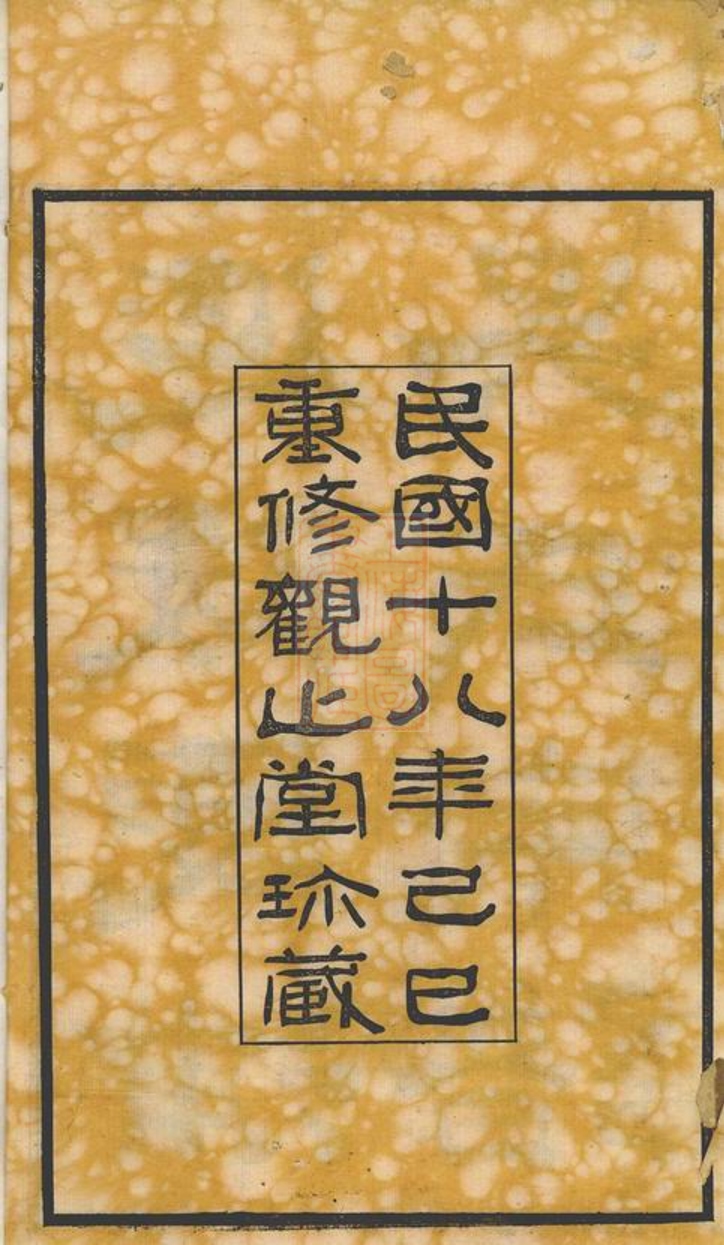 民國十八年己巳
重修觀止堂珎藏